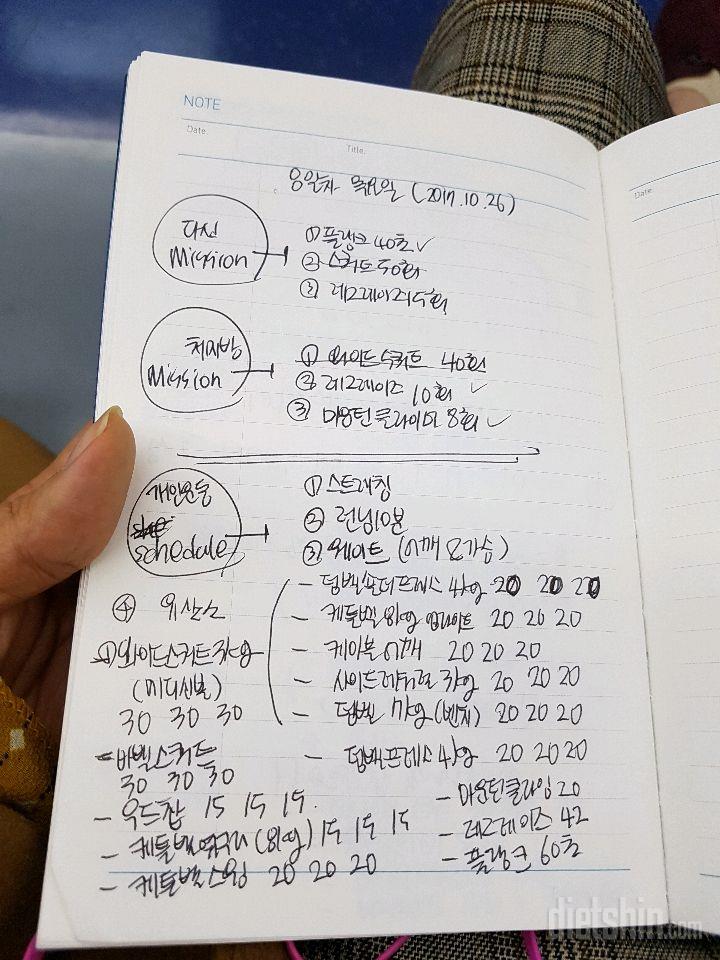 NOTE
Date.
Title.
Date.
9일차 목요일 (2017.10.26)
다신
Mission
① 플랭크 40초 ✓
② 스쿼트 50회
③ 레그레이즈 5회
체지방
Mission
① 와이드스쿼트 40회
② 레그레이즈 10회 ✓
③ 마운틴클라이머 8회 ✓
개인운동
schedule
① 스트레칭
② 런닝10분
③ 웨이트 (어깨&가슴)
- 덤벨숄더프레스 4kg 20 20 20
- 케틀벨 8kg 20 20 20
- 케이블 어깨 20 20 20
- 사이드레터럴 3kg 20 20 20
- 덤벨 7kg (벤치) 20 20 20
- 덤벨프레스 4kg 20 20 20
④ 유산소
① 와이드스쿼트 3kg
(메디신볼)
30 30 30
- 바벨스쿼트
30 30 30
- 우드찹 15 15 15.
- 케틀벨 (8kg) 15 15 15
- 케틀벨스윙 20 20 20
- 마운틴클라임 20
- 레그레이즈 42
- 플랭크 60초
dietshin.com